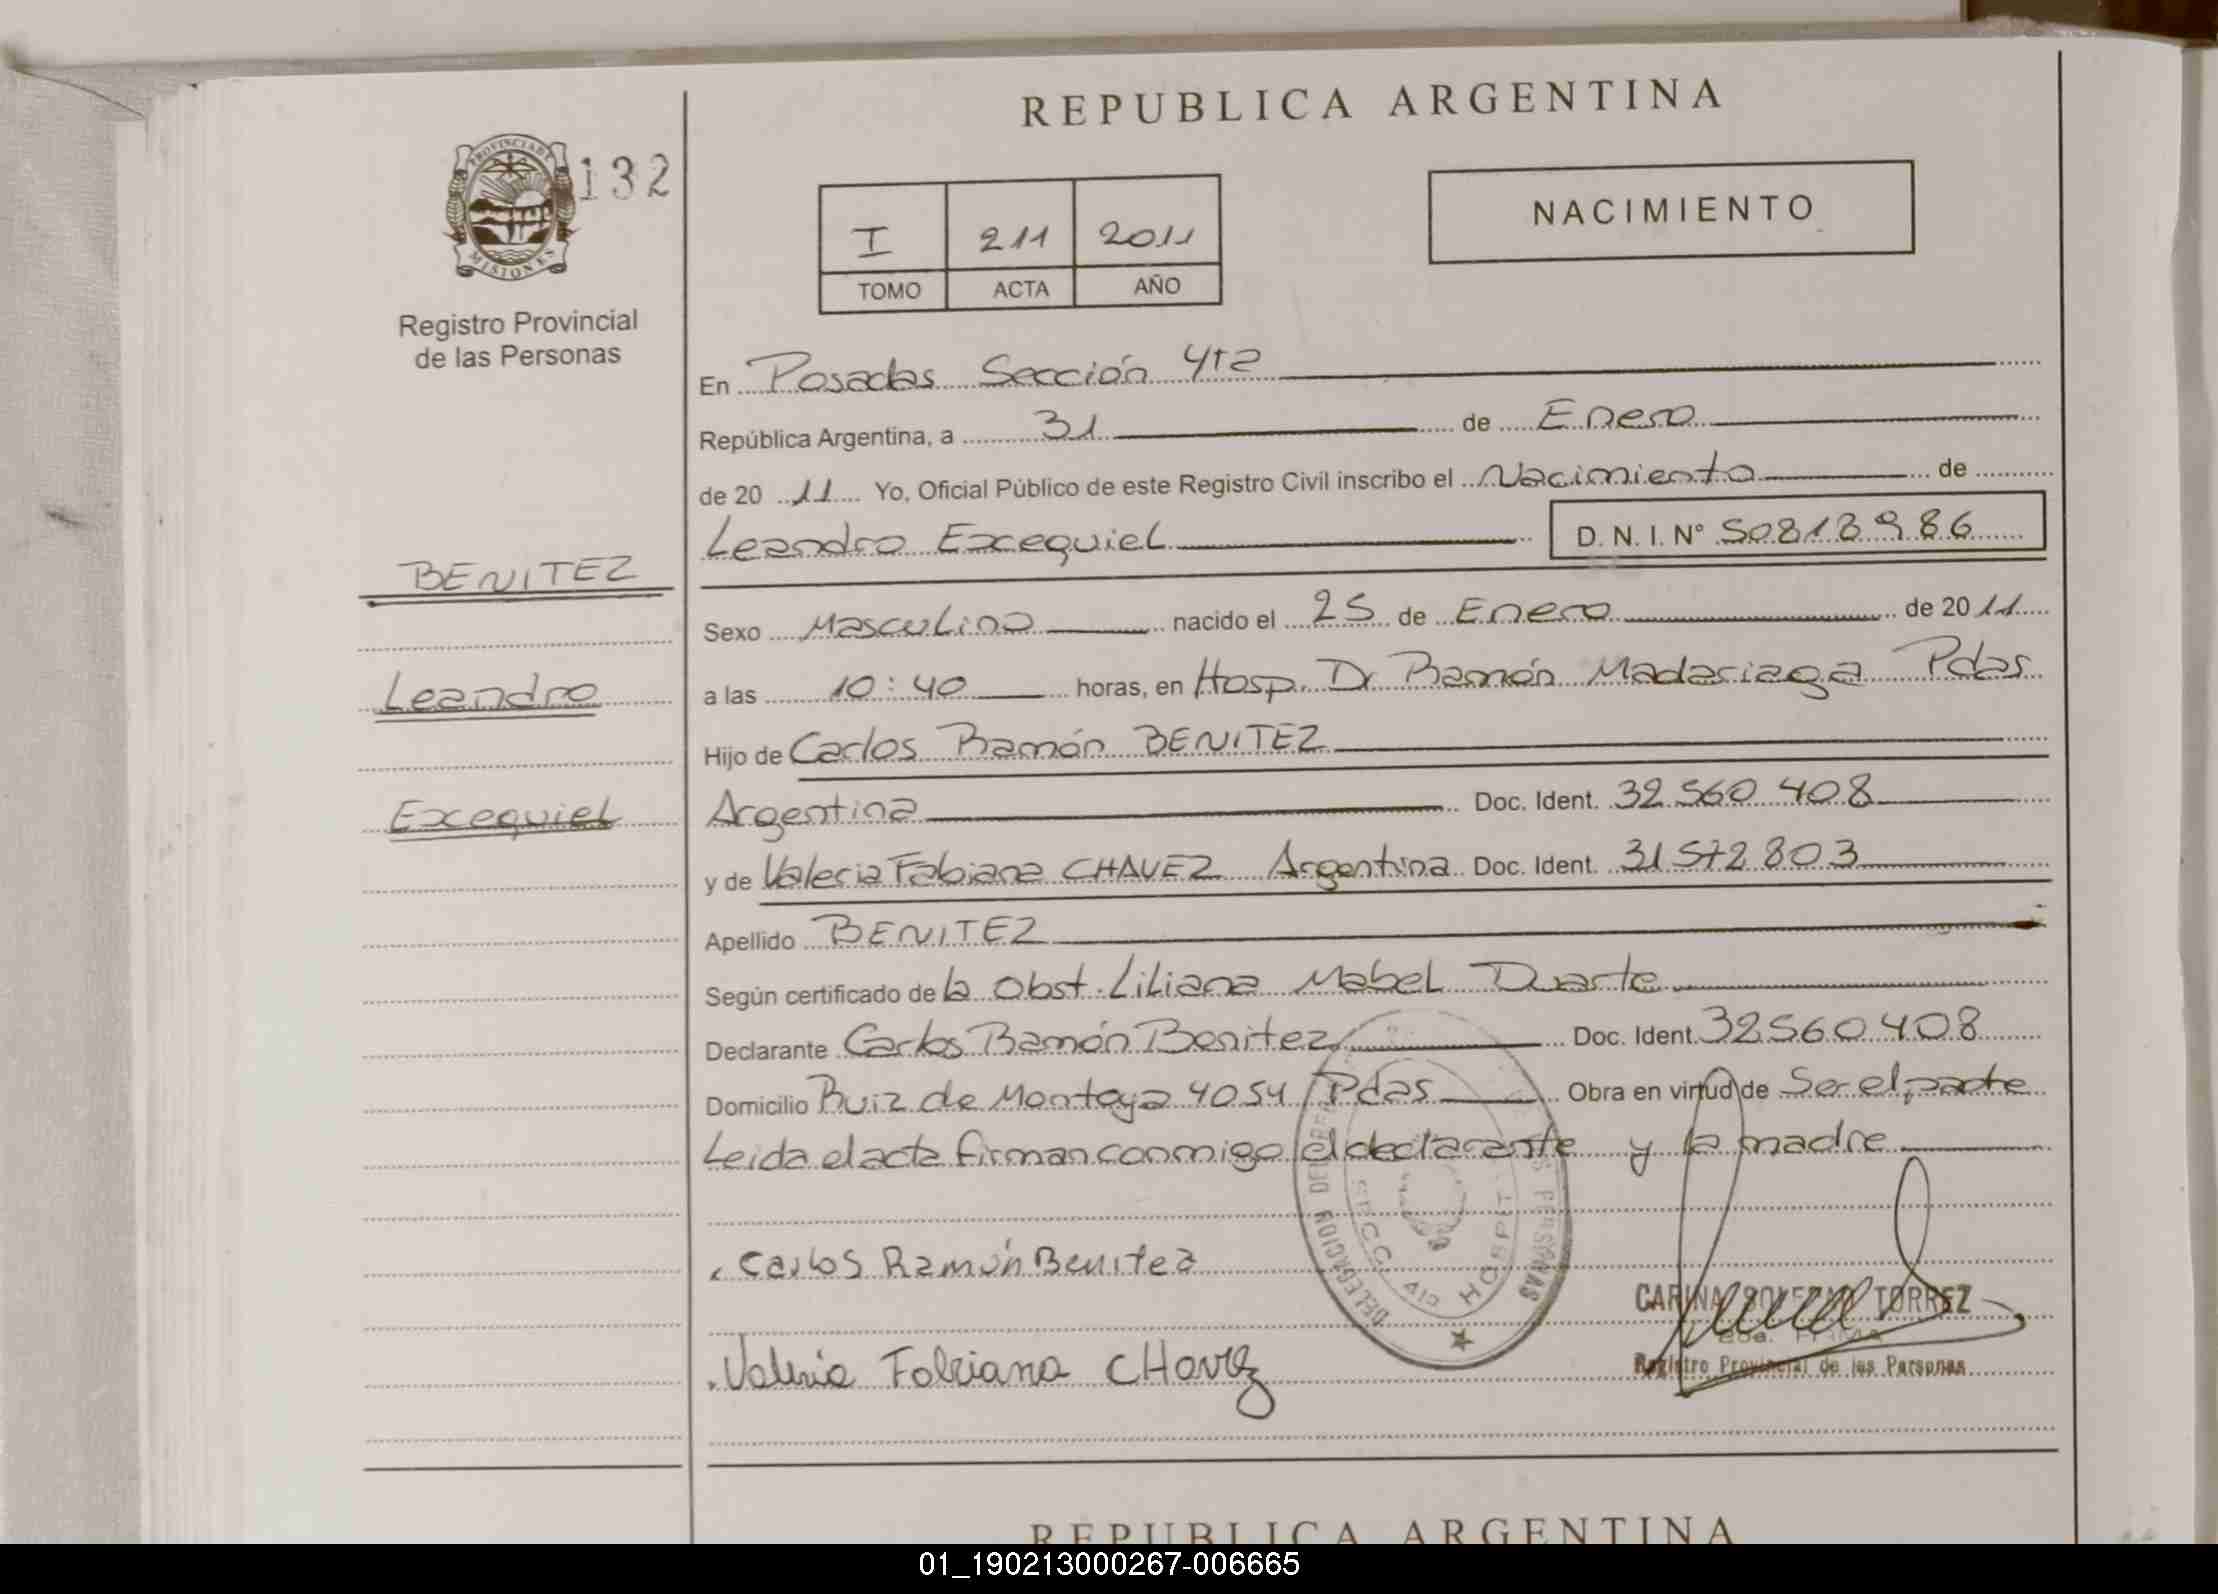 REPUBLICA ARGENTINA
PROVINCIA DE
MISIONES
132
Registro Provincial
de las Personas
I 211 2011
TOMO ACTA AÑO
NACIMIENTO
En Posadas Sección 4ta
República Argentina, a 31 de Enero
de 20 11 Yo, Oficial Público de este Registro Civil inscribo el Nacimiento de
Leandro Excequiel D. N. I. N° 50813986
BENITEZ
Leandro
Excequiel
Sexo Masculino nacido el 25 de Enero de 20 11
a las 10:40 horas, en Hosp. Dr Ramón Madariaga Pdas
Hijo de Carlos Ramón BENITEZ
Argentina Doc. Ident. 32 560 408
y de Valeria Fabiana CHAVEZ Argentina Doc. Ident. 31 572 803
Apellido BENITEZ
Según certificado de la Obst. Liliana Mabel Duarte
Declarante Carlos Ramón Benitez Doc. Ident. 32560408
Domicilio Ruiz de Montoya 4054 Pdas Obra en virtud de Ser el padre
Leida el acta firman conmigo el declarante y la madre
Carlos Ramón Benitez
Valeria Fabiana CHavez
DELEGACION DEL
PERSONAS
SECC. 4ta HOSPIT
CARINA SOLEDAD TORREZ
FIRMA
Registro Provincial de las Personas
REPUBLICA ARGENTINA
01_190213000267-006665